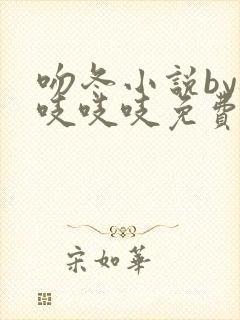 吻冬小說by
吱吱吱免費
宋如華